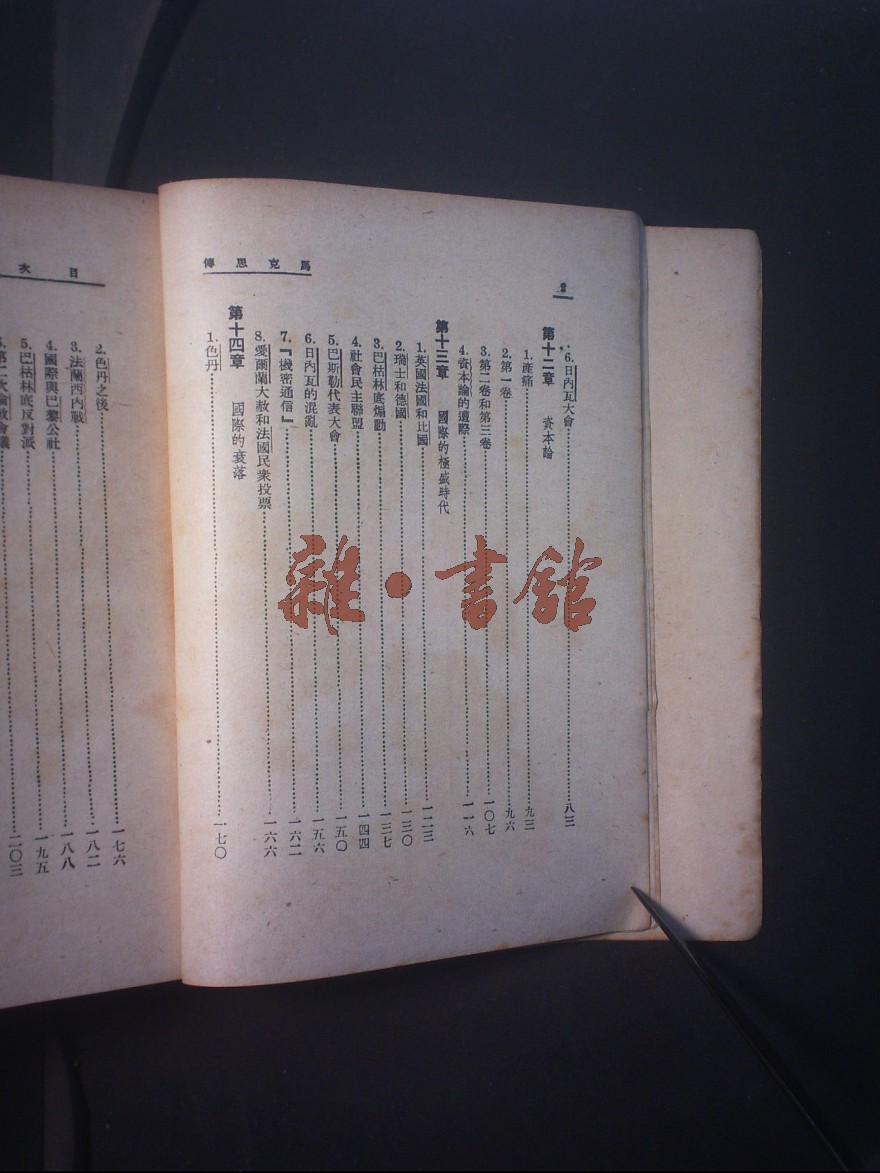 2
馬克思傳
6.日內瓦大會 八三
第十二章 資本論
1.產痛 九三
2.第一卷 九六
3.第二卷和第三卷 一〇七
4.資本論的遭際 一一六
第十三章 國際的極盛時代
1.英國法國和比國 一二三
2.瑞士和德國 一三〇
3.巴枯林底煽動 一三七
4.社會民主聯盟 一四四
5.巴斯勒代表大會 一五〇
6.日內瓦的混亂 一五六
7.『機密通信』 一六二
8.愛爾蘭大赦和法國民衆投票 一六六
第十四章 國際的衰落
1.色丹 一七〇
目次
2.色丹之後 一七六
3.法蘭西內戰 一八二
4.國際與巴黎公社 一八八
5.巴枯林底反對派 一九五
第二次倫敦會議 二〇三
雜·書館